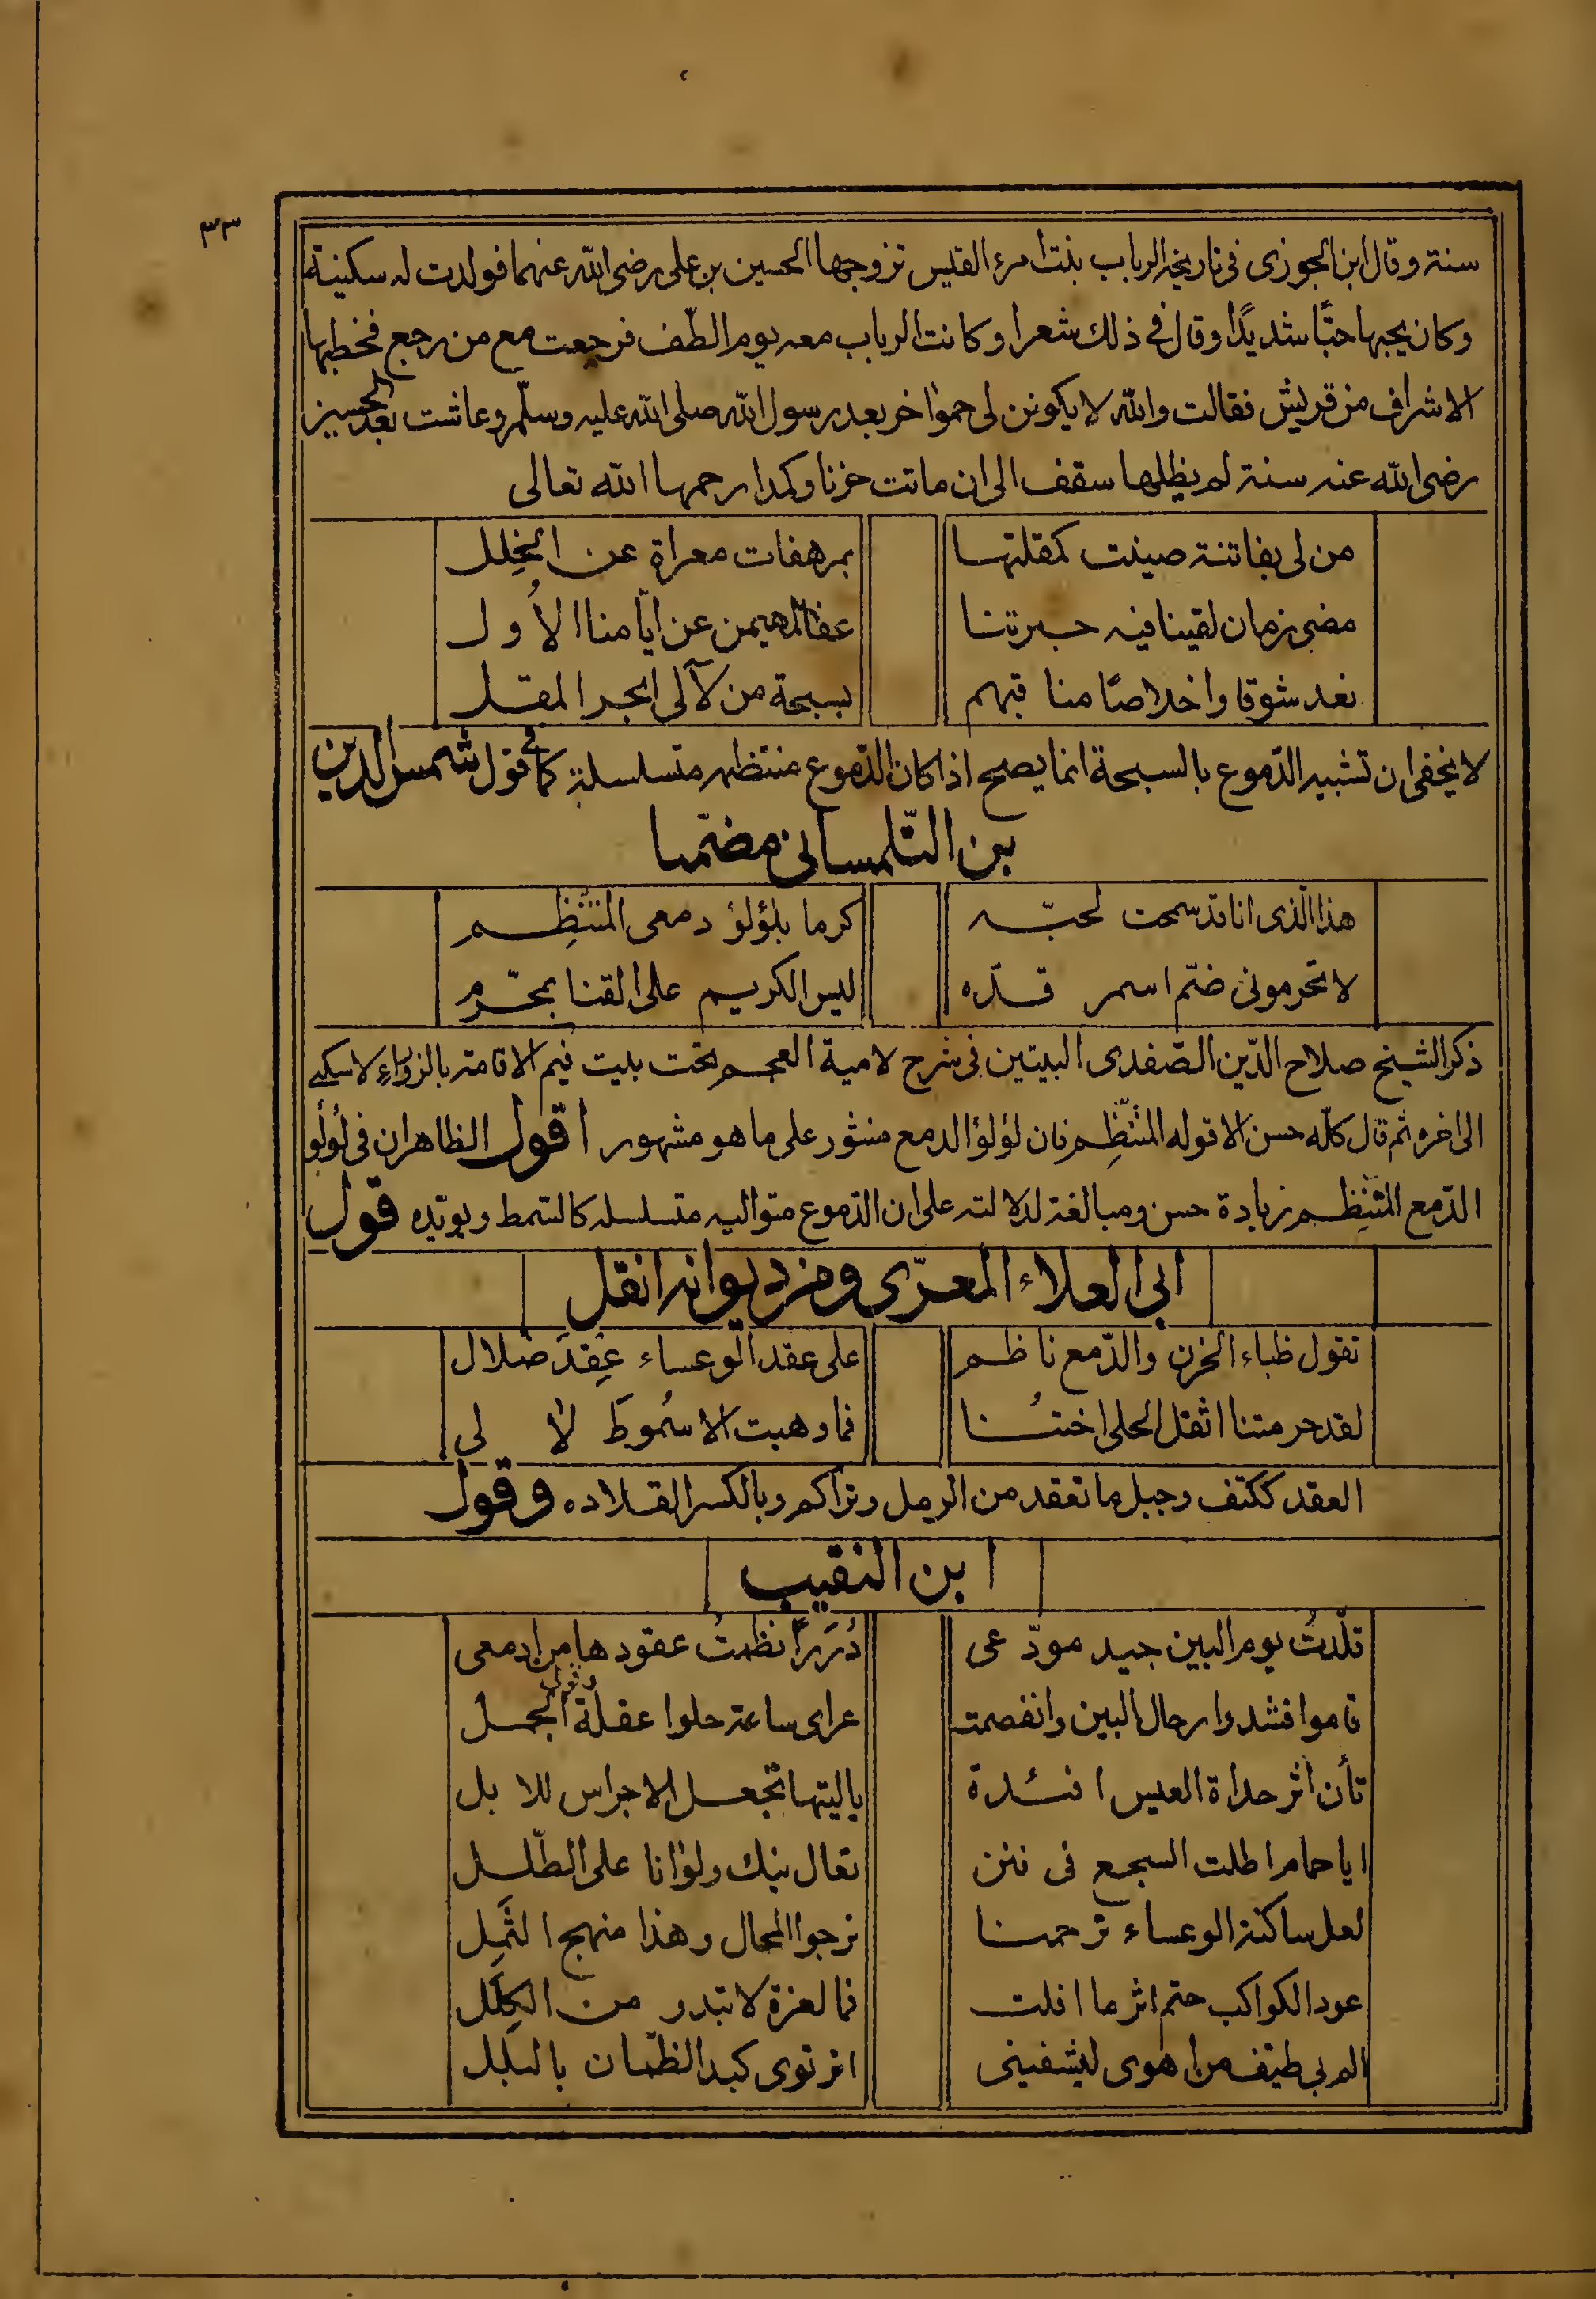 ٣٣
سنة وقال ابن الجوزى فى تاريخه الرباب بنت امرء القيس تزوجها الحسين بن على رضى الله عنهما فولدت له سكينة
وكان يحبها حبًّا شديدًا وقال فى ذلك شعرا وكانت الرباب معه يوم الطّف فرجعت مع من رجع فخطبها
الاشراف من قريش فقالت والله لا يكونن لى حموا خر بعد رسول الله صلى الله عليه وسلّم وعاشت بعد الحسين
رضى الله عنه سنة لم يظلها سقف الى ان ماتت حزنا وكمدا رحمها الله تعالى
من لى بفاتنة صينت كمقلتها بمرهفات معراة عن الخِلل
مضى زمان لقينا فيه حبرتنا عفا المهيمن عن ايّامنا الأول
نعد شوقا واخلاصًا منا قبهم بسبحة من لآلى ابحر المقل
لا يخفى ان تشبيه الدّموع بالسبحة انما يصح اذا كان الدّموع منتظمه متسلسلة كما فى قول شمس الدين
بن التّلمسانى مضمّنا
هذا الّذى انا قد سمحت لحبّه كرما بلؤلؤ دمعى المنتَظِم
لا تحرمونى ضمّ اسمر قدّه ليس الكريم على القنا بمحرّم
ذكر الشيخ صلاح الدّين الصّفدى البيتين فى شرح لامية العجم تحت بيت فيم الاقامة بالزوراءِ لا سكنى
الى اخره ثم قال كلّه حسن الا قوله المنتَظِم فان لؤلؤ الدمع منثور على ما هو مشهور اقول الظاهر ان فى لؤلؤ
الدّمع المنتَظِم زيادة حسن ومبالغة لدلالته على ان الدّموع متواليه متسلسله كالسّمط ويويّده قول
ابى العلاء المعرّى ومن ديوانه انقل
تقول ظباء الحزن والدّمع ناظم على عقد الوعساء عِقدَ ضلال
لقد حرمتنا اثقل الحلى اختُنا فما وهبت الا سُموطَ لا لى
العقد ككتف وجبل ما تعقد من الرمل وتراكم وبالكسر القلاده وقول
ابن النقيب
قلّدتُ يوم البين جيد مودّعى دُرَرًا نظمتُ عقودها من ادمعى
وقولى
قاموا فشدوا رحال البين وانفصمت عراى ساعة حلوا عقلة الجمل
تأن اثر حداة العيس افئدة ياليتها تجعل الاجراس للابل
ايا حماما اطلت السجع فى فنن تعال نبك ولو انا على الطّلل
لعل ساكنة الوعساء ترحمنا نرجوا المحال وهذا منهج الثَمِل
عود الكواكب حتم اثر ما افلت فما لعزة لا تبدر من الكِلَل
الم بى طيف من اهوى ليشفينى اترتوى كبد الظمّان بالبلل